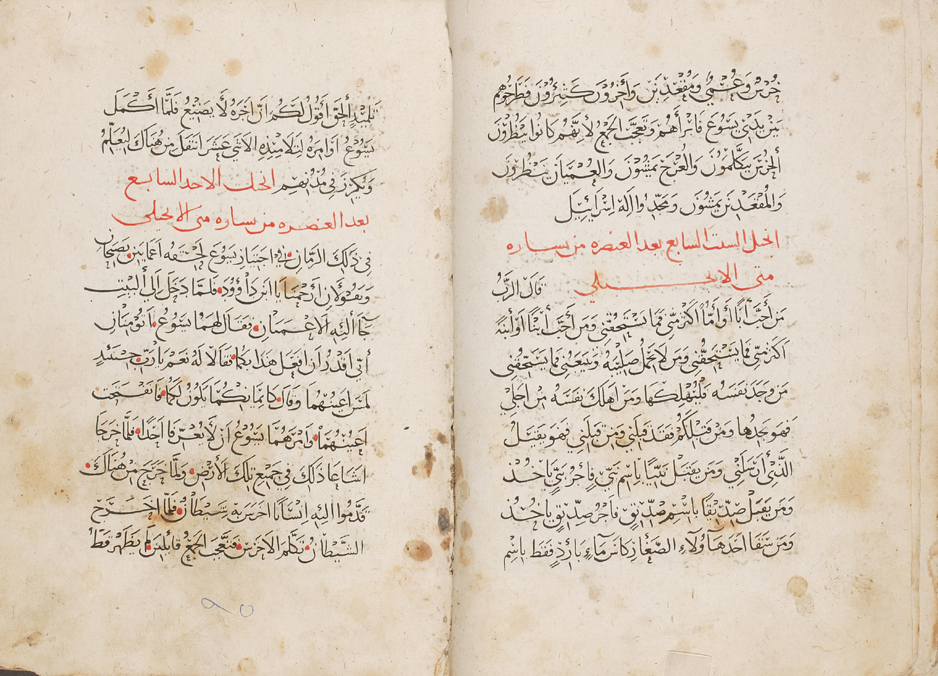 خرس وعمي ومقعدين واخرون كثيرون فطرحوهم
بين يدي يسوع فابراهم وتعجب الجمع لانهم كانوا ينظرون
الخرس يتكلمون والعرج يمشون والعميان ينظرون
والمقعدين يمشون ومجدوا اله اسرائيل
انجيل السبت السابع بعد العنصره من بشاره
متى الانجيلي قال الرب
من احب ابا او اما اكثر مني فما يستحقني ومن احب ابنا او ابنة
اكثر مني فما يستحقني ومن لا يحمل صليبه ويتبعني فما يستحقني
من وجد نفسه فليهلكها ومن اهلك نفسه من اجلي
فهو يجدها ومن قبلكم فقد قبلني ومن قبلني فهو يقبل
الذي ارسلني ومن يقبل نبيا باسم نبي فاجر نبي ياخذ
ومن يقبل صديقا باسم صديق فاجر صديق ياخذ
ومن سقا احد هاولاء الصغار كاس ماء بارد فقط باسم
تلميذ الحق اقول لكم ان اجره لا يضيع فلما اكمل
يسوع اوامره لتلامذه الاثني عشر انتقل من هناك ليعلم
ويكرز في مدنهم انجيل الاحد السابع
بعد العنصره من بشاره متى الانجيلي
في ذلك الزمان اجتاز يسوع لحقه اعميان يصيحان
ويقولان ارحمنا يا ابن داوود فلما دخل الى البيت
جا اليه الاعميان فقال لهما يسوع اتومنان
اني اقدر ان افعل هذا بكما فقالا له نعم يا رب حينئذ
لمس اعينهما وقال كايمانكما يكون لكما فانفتحت
اعينهما وامرهما يسوع ان لا يعرفا احدا فلما خرجا
اشاعا ذلك في جميع تلك الارض ولما خرج من هناك
قدموا اليه انسانا اخرس به شيطان فلما اخرج
الشيطان تكلم الاخرس فتعجب الجمع قائلين لم يظهر قط
٩٥